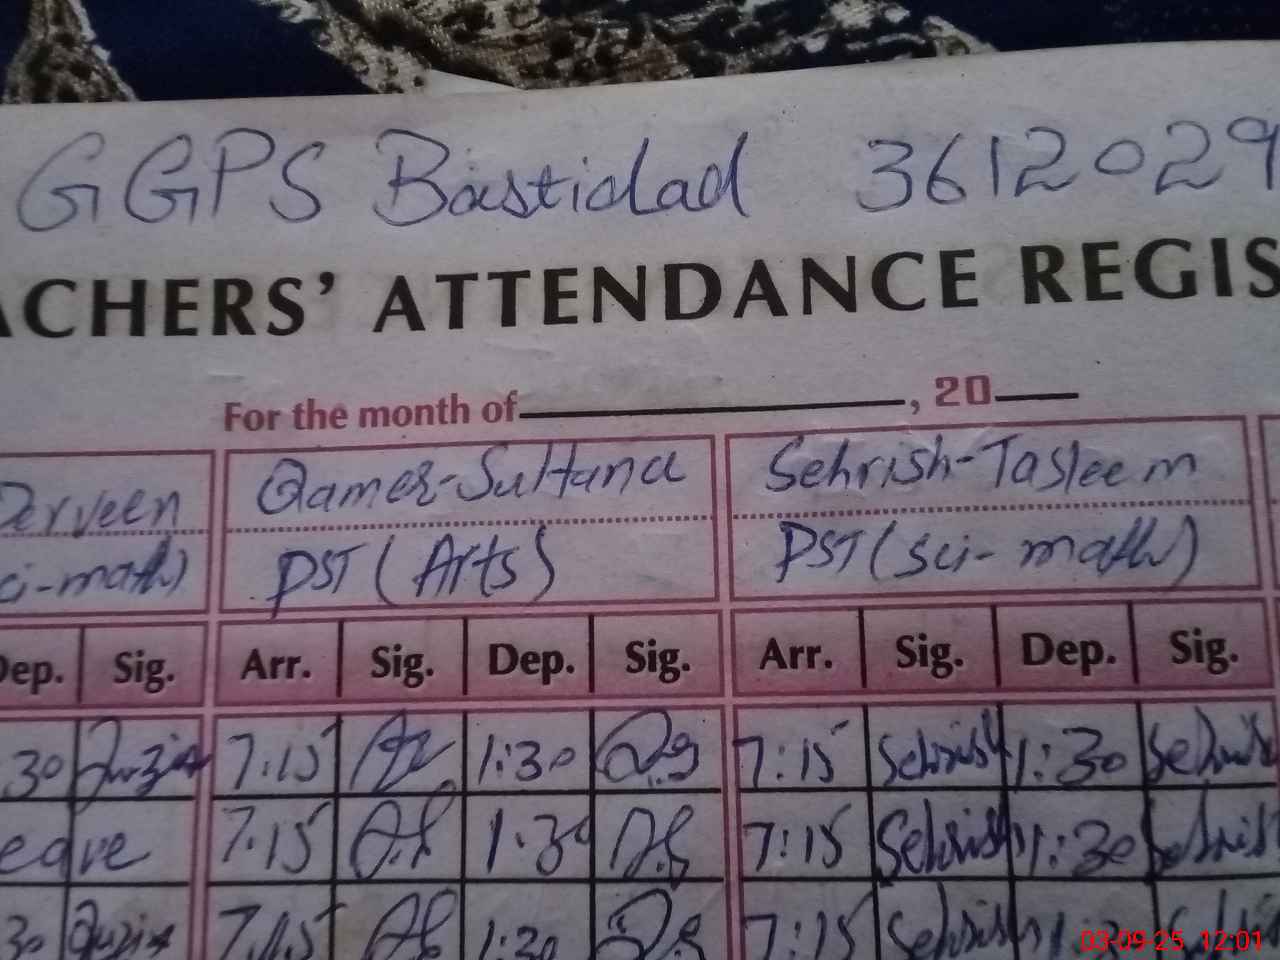 GGPS Bastidad 3612029
ACHERS' ATTENDANCE REGIS
For the month of , 20
Perveen Qamer-Sultana Sehrish-Tasleem
ci-math) PST (Arts) PST (Sci- math)
Dep. Sig. Arr. Sig. Dep. Sig. Arr. Sig. Dep. Sig.
30 7:15 1:30 7:15 Sehrish 1:30 Sehrish
eave 7:15 1:30 7:15 Sehrish 1:30 Sehrish
30 7:15 1:30 7:15 Sehrish
03-09-25 12:01